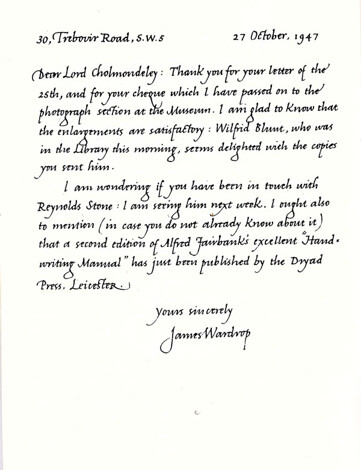 30, Trebovir Road, S.W.5 27 October, 1947
Dear Lord Cholmondeley: Thank you for your letter of the
25th, and for your cheque which I have passed on to the
photograph section at the Museum. I am glad to know that
the enlargements are satisfactory: Wilfrid Blunt, who was
in the Library this morning, seems delighted with the copies
you sent him.
I am wondering if you have been in touch with
Reynolds Stone: I am seeing him next week. I ought also
to mention (in case you do not already know about it)
that a second edition of Alfred Fairbank's excellent "Hand-
writing Manual" has just been published by the Dryad
Press, Leicester.
Yours sincerely
James Wardrop